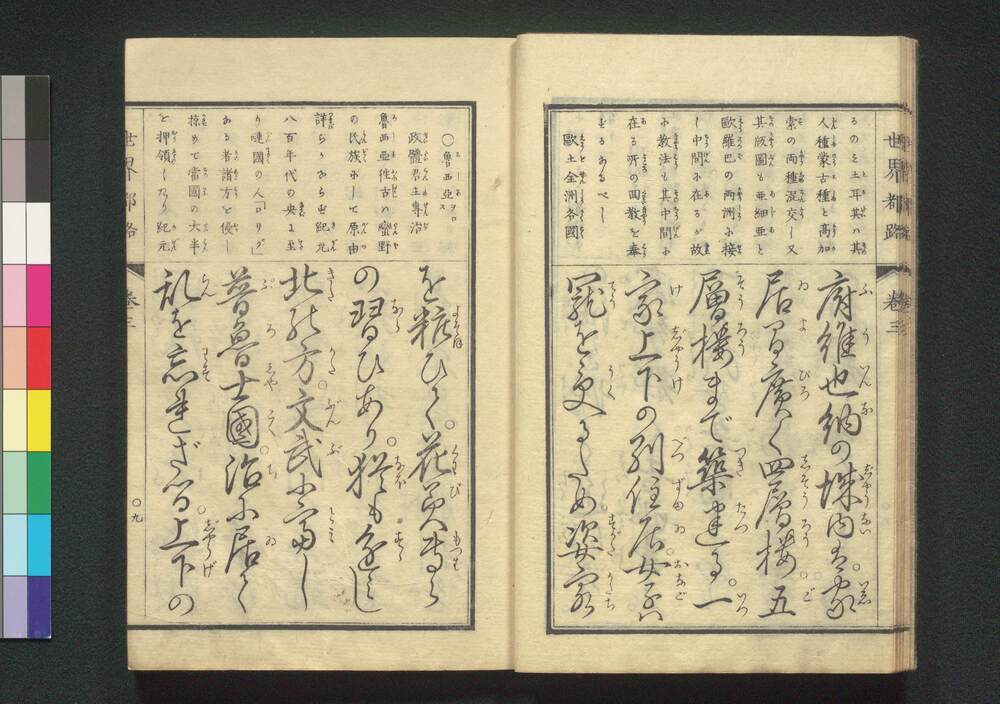 世界都路 卷三
るのミ土耳其ハ其
人種蒙古種と高加
索の両種混交し又
其版圖も亜細亜と
欧羅巴の両洲に接
し中間に在るが故
に教法も其中間に
在る所の回教を奉
ずるあるべし
歐土全洲各國
府維也納の城内は家
居間廣く四層楼。五
層楼まで築建る。一
家上下の列住居女子ハ
寵を更るため姿容
世界都路 卷三
〇魯西亜
政體君主專治
魯西亜往古ハ蠻野
の民族にして原由
詳らかならず紀元
八百年代の央に至
り嗹國の人「ロリグ」
なる者諸方を侵し
掠めて當國の大半
を押領しなり紀元
を粧ひて。花美専ら
の習ひあり。猶も進し
北の方。文武に富し
普魯士國。治に居て
乱を忘れざる。上下の
〇九